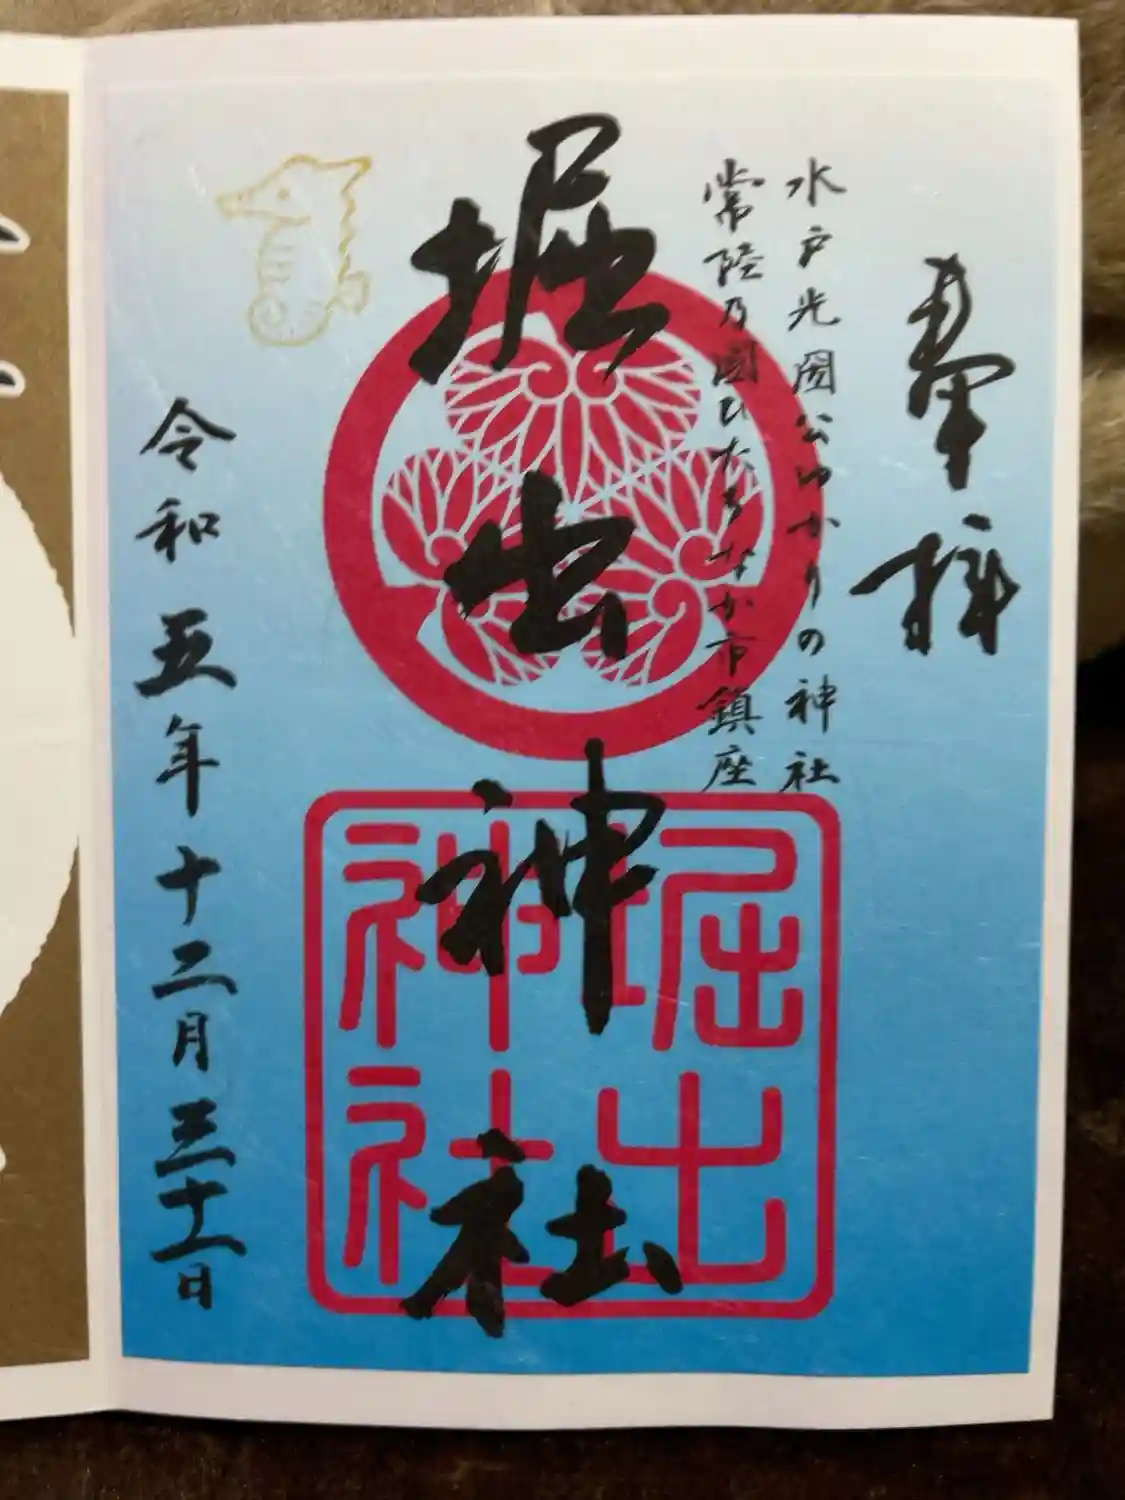 奉拝
水戸光圀公ゆかりの神社
常陸乃國ひたちなか市鎮座
堀出神社
堀出
神社
令和五年十二月三十一日